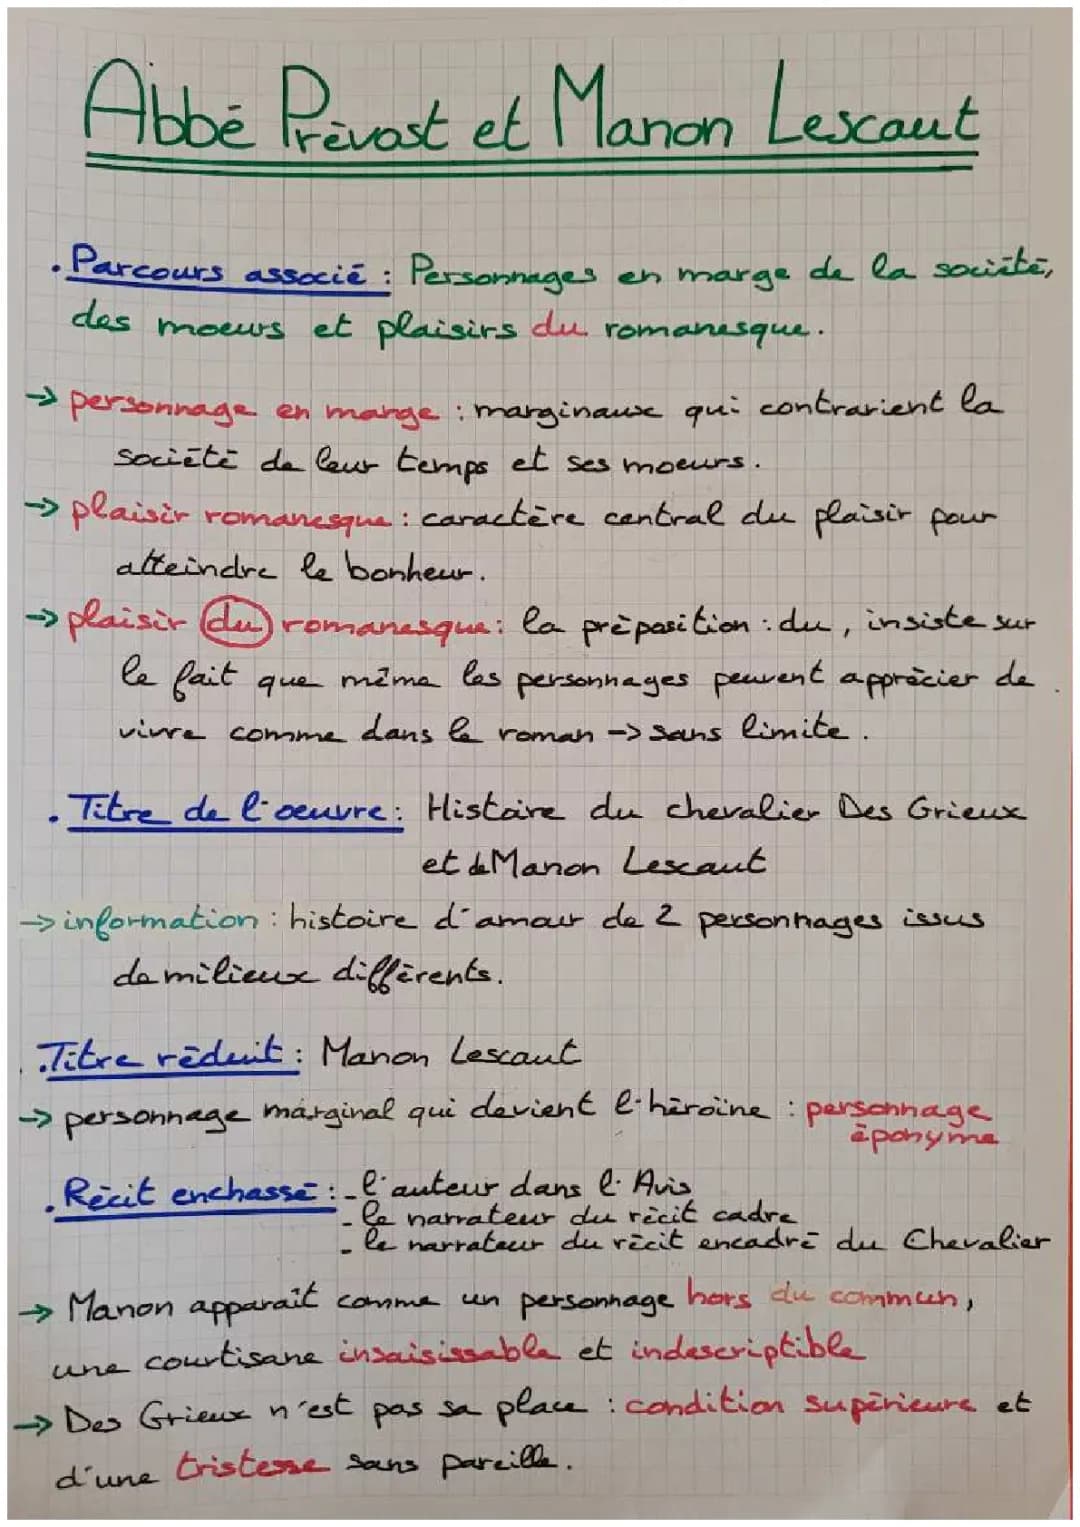 Abbé Prévost et Manon Lescaut
. Parcours associé : Personnages en marge de la société,
des moeurs et plaisirs du romanesque.
→ personnage en marge : marginaux qui contrarient la
société de leur temps et ses moeurs.
→ plaisir romanesque : caractère central du plaisir pour
atteindre le bonheur.
→ plaisir du romanesque : la préposition : du, insiste sur
le fait que même les personnages peuvent apprécier de
vivre comme dans le roman → sans limite.
. Titre de l'oeuvre : Histoire du chevalier Des Grieux
et de Manon Lescaut
→ information : histoire d'amour de 2 personnages issus
de milieux différents.
. Titre réduit : Manon Lescaut
→ personnage marginal qui devient l'héroïne : personnage
éponyme
. Récit enchassé : - l'auteur dans l'Avis
- le narrateur du récit cadre
- le narrateur du récit encadré du Chevalier
→ Manon apparaît comme un personnage hors du commun,
une courtisane insaisissable et indescriptible
→ Des Grieux n'est pas sa place : condition supérieure et
d'une tristesse sans pareille.